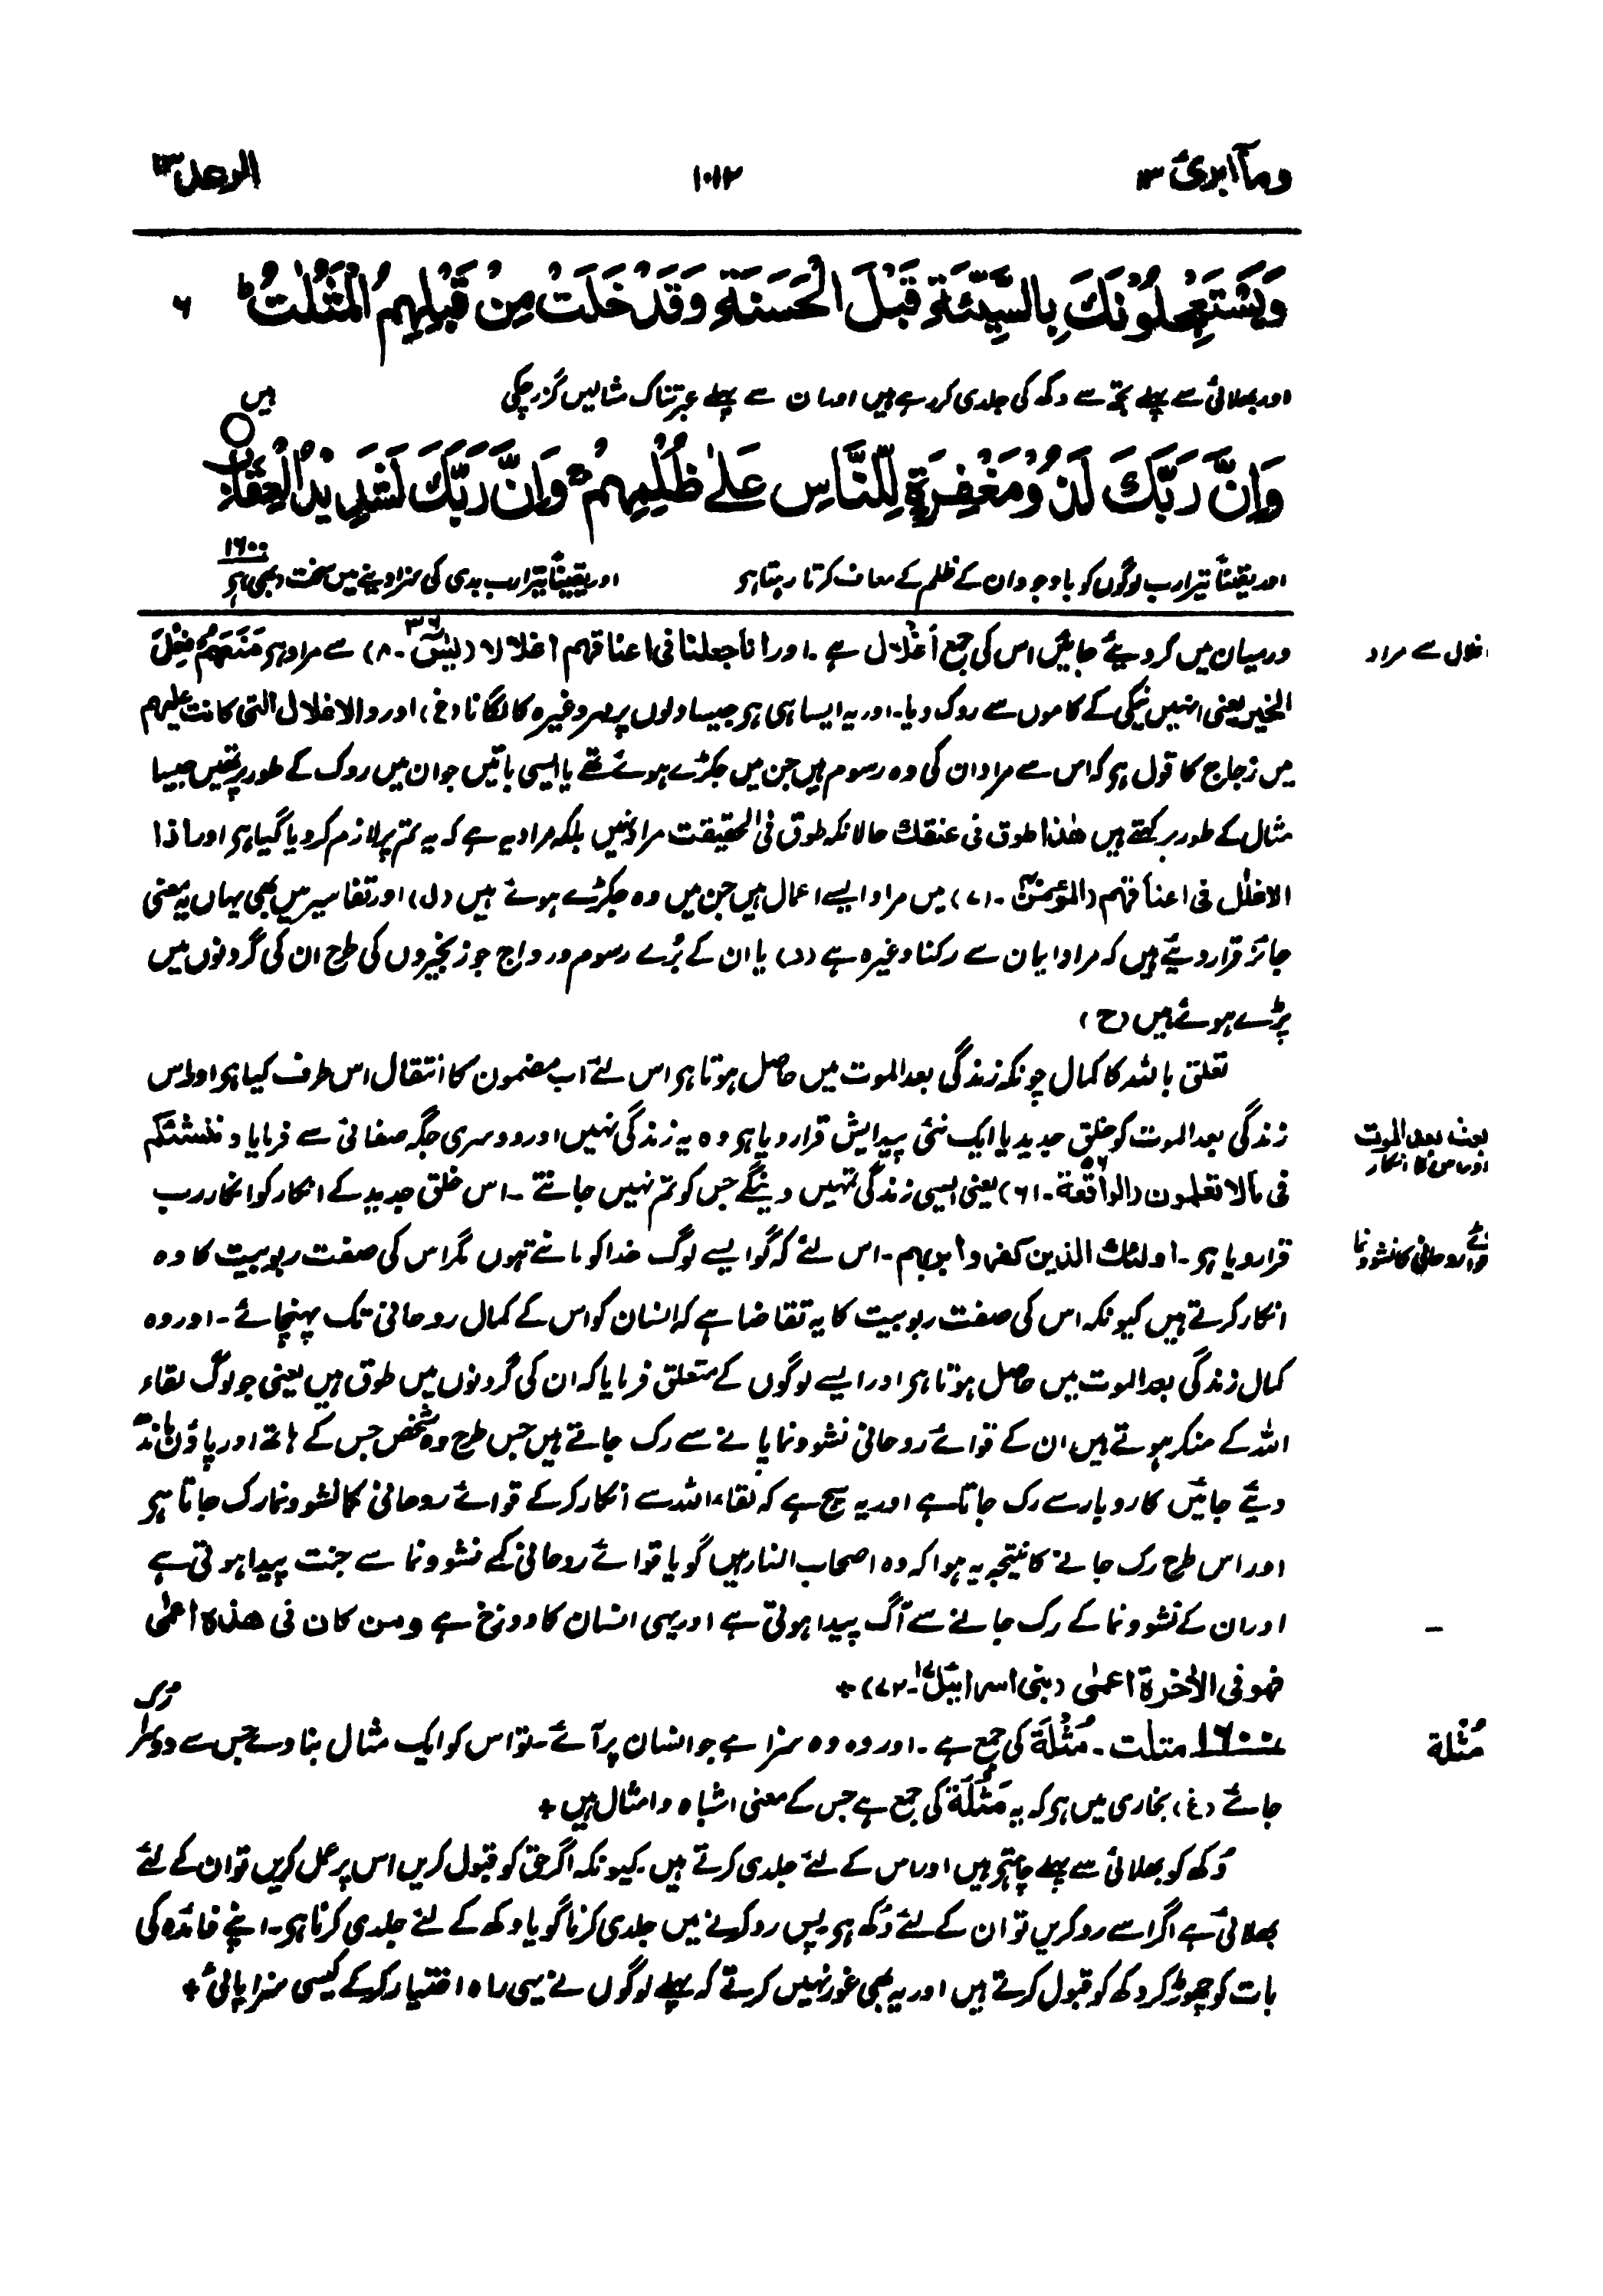 ومآ ابرئ ١٣
١٠١٢
الرعد ١٣
وَيَسْتَعْجِلُوْنَكَ بِالسَّيِّئَةِ قَبْلَ الْحَسَنَةِ وَقَدْ خَلَتْ مِنْ قَبْلِهِمُ الْمَثُلٰتُ ؕ ٦
اور بھلائی سے پہلے تجھ سے دکھ کی جلدی کر رہے ہیں اور ان سے پہلے عبرتناک مثالیں گزر چکی ہیں
وَاِنَّ رَبَّكَ لَذُوْ مَغْفِرَةٍ لِّلنَّاسِ عَلٰى ظُلْمِهِمْ ۚ وَاِنَّ رَبَّكَ لَشَدِيْدُ الْعِقَابِ
اور یقیناً تیرا رب لوگوں کو باوجود ان کے ظلم کے معاف کرتا رہتا ہے اور یقیناً تیرا رب بدی کی سزا دینے میں سخت (بھی) ہے ١٦٠٠
اغلال سے مراد
درمیان میں کر دیئے جائیں اس کی جمع اَغْلَال ہے۔ اور انا جعلنا فی اعناقهم اغلالا (یٰسٓ ٣٦۔٨) سے مراد ہے مَنَعَهُمْ فِعْلَ
الخیر یعنی انہیں نیکی کے کاموں سے روک دیا۔ اور یہ ایسا ہی ہے جیسا دلوں پر مہر وغیرہ کا لگانا (غ) اور والاغلال التی کانت علیهم
میں زجاج کا قول ہے کہ اس سے مراد ان کی وہ رسوم ہیں جن میں جکڑے ہوئے تھے یا ایسی باتیں جو ان میں روک کے طور پر تھیں جیسا
مثال کے طور پر کہتے ہیں هٰذا طوق فی عنقك حالانکہ طوق فی الحقیقت مراد نہیں بلکہ مراد یہ ہے کہ یہ تم پر لازم کر دیا گیا ہے اور اذا
الاغلٰل فی اعناقهم (المؤمن۔٧١) میں مراد ایسے اعمال ہیں جن میں وہ جکڑے ہوئے ہیں (ل) اور تفاسیر میں بھی یہاں یہ معنی
جائز قرار دیئے ہیں کہ مراد ایمان سے رکنا وغیرہ ہے (ر) یا ان کے بُرے رسوم و رواج جو زنجیروں کی طرح ان کی گردنوں میں
پڑے ہوئے ہیں (ح)
تعلق باللہ کا کمال چونکہ زندگی بعد الموت میں حاصل ہوتا ہے اس لئے اب مضمون کا انتقال اس طرف کیا ہے اور اس
بعث بعد الموت اور اس کا انکار
زندگی بعد الموت کو خلق جدید یا ایک نئی پیدایش قرار دیا ہے وہ یہ زندگی نہیں اور دوسری جگہ صفائی سے فرمایا و ننشئکم
فی مالا تعلمون (الواقعة ٥٦۔٦١) یعنی ایسی زندگی تمہیں دینگے جس کو تم نہیں جانتے۔ اس خلق جدید کے انکار کو انکار رب
قوائے روحانی کا نشوونما
قرار دیا ہے۔ اولئك الذین کفروا بربهم۔ اس لئے کہ گو ایسے لوگ خدا کو مانتے ہوں مگر اس کی صفت ربوبیت کا وہ
انکار کرتے ہیں کیونکہ اس کی صفت ربوبیت کا یہ تقاضا ہے کہ انسان کو اس کے کمال روحانی تک پہنچائے۔ اور وہ
کمال زندگی بعد الموت میں حاصل ہوتا ہے اور ایسے لوگوں کے متعلق فرمایا کہ ان کی گردنوں میں طوق ہیں یعنی جو لوگ لقاء
اللہ کے منکر ہوتے ہیں ان کے قوائے روحانی نشوونما پانے سے رک جاتے ہیں جس طرح وہ شخص جس کے ہاتھ اور پاؤں باندھ
دیئے جائیں کاروبار سے رک جاتا ہے اور یہ سچ ہے کہ لقاء اللہ سے انکار کر کے قوائے روحانی کا نشوونما رک جاتا ہے
اور اس طرح رک جانے کا نتیجہ یہ ہوا کہ وہ اصحاب النار ہیں گویا قوائے روحانی کے نشوونما سے جنت پیدا ہوتی ہے
اور ان کے نشوونما کے رک جانے سے آگ پیدا ہوتی ہے اور یہی انسان کا دوزخ ہے ومن کان فی هذہ اعمٰی
فهو فی الاٰخرة اعمٰی (بنی اسرائیل ١٧۔٧٢) +
مُثْلة
١٦٠٠ مثلت۔ مُثْلَة کی جمع ہے۔ اور وہ وہ سزا ہے جو انسان پر آئے۔ تو اس کو ایک مثال بنا دے جس سے دوسرا رک
جائے (غ) بخاری میں ہے کہ یہ مَثُلَة کی جمع ہے جس کے معنی اشباہ و امثال ہیں +
دُکھ کو بھلائی سے پہلے چاہتے ہیں اور اس کے لئے جلدی کرتے ہیں۔ کیونکہ اگر حق کو قبول کریں اس پر عمل کریں تو ان کے لئے
بھلائی ہے اگر اسے رد کریں تو ان کے لئے دُکھ ہے۔ پس رد کرنے میں جلدی کرنا گویا دکھ کے لئے جلدی کرنا ہے۔ اپنے فائدہ کی
بات کو چھوڑ کر دکھ کو قبول کرتے ہیں اور یہ بھی غور نہیں کرتے کہ پہلے لوگوں نے یہی راہ اختیار کر کے کیسی سزا پائی +